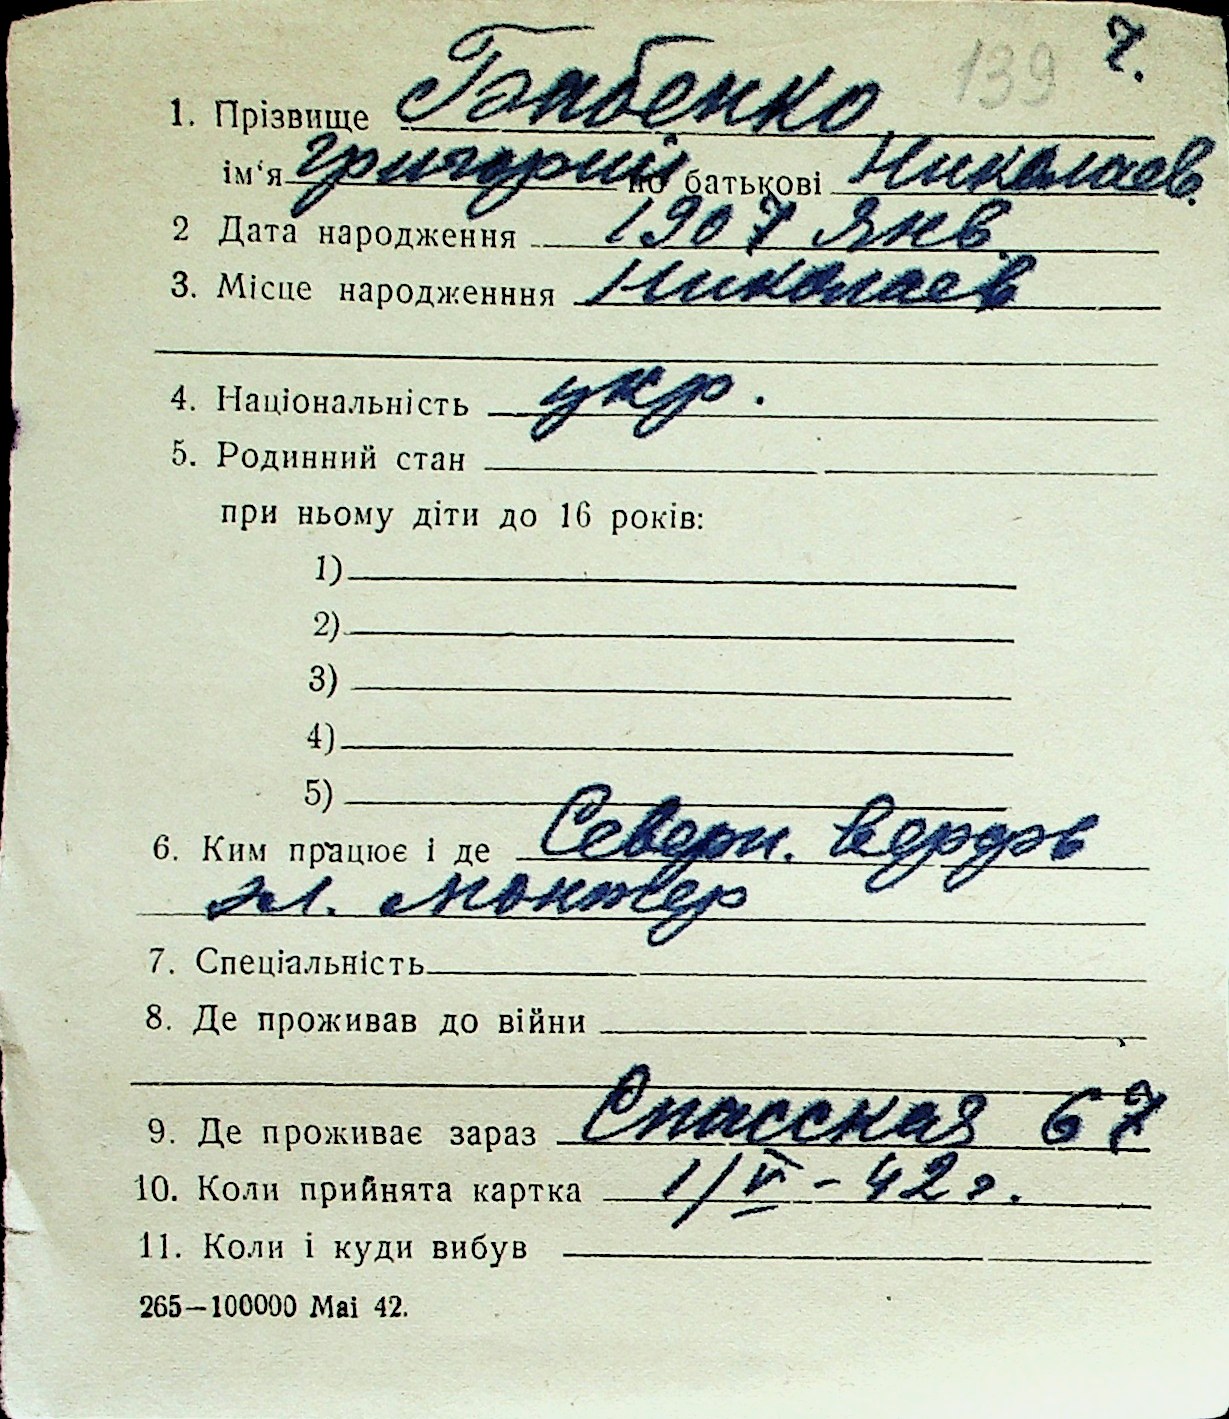 139 7.
1. Прізвище Бабенко
ім‘я Григорий по батькові Николаев.
2 Дата народження 1907 янв
3. Місце народженння Николаев
4. Національність укр.
5. Родинний стан
при ньому діти до 16 років:
1)
2)
3)
4)
5)
6. Ким працює і де Северн. верфь
эл. монтер
7. Спеціальність
8. Де проживав до війни
9. Де проживає зараз Спасская 67
10. Коли прийнята картка 1/V – 42 г.
11. Коли і куди вибув
265—100000 Mai 42.